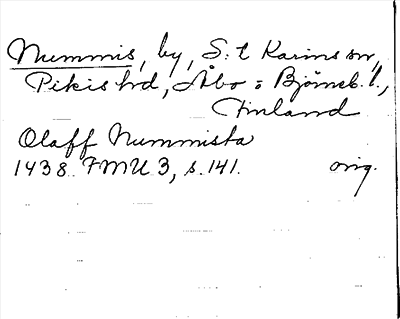 Nummis, by, S:t Karins sn,
Pikis hd, Åbo o Björneb. l.,
Finland
Olaff Nummista
1438 FMU 3, s. 141. orig.